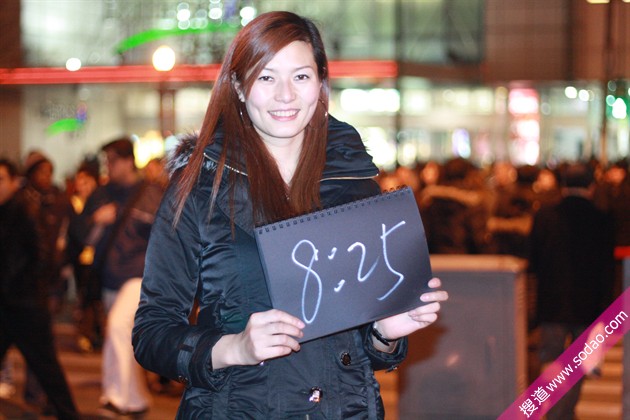 8:25
搜道www.sodao.com